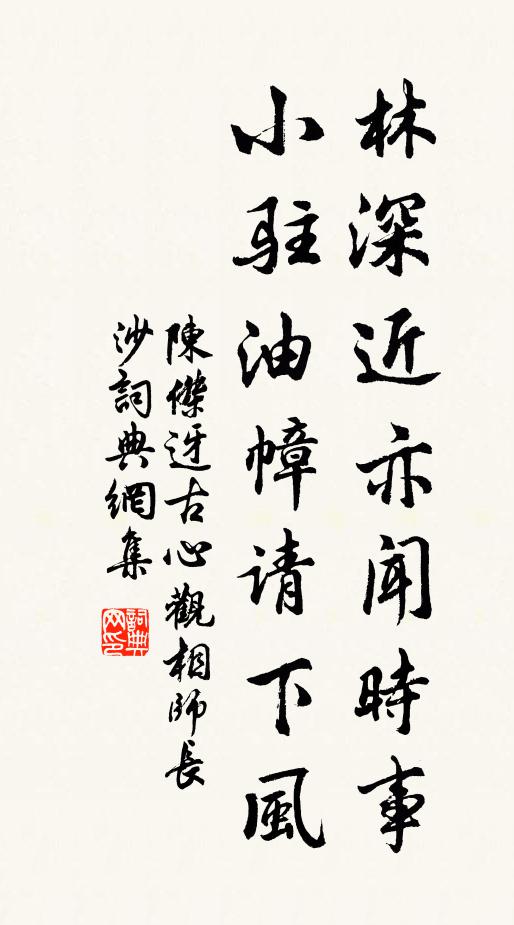 林深近亦聞時事
小駐油幢请下風
陳傑迓古心觀相師長
沙詞典網集
詞典
网印